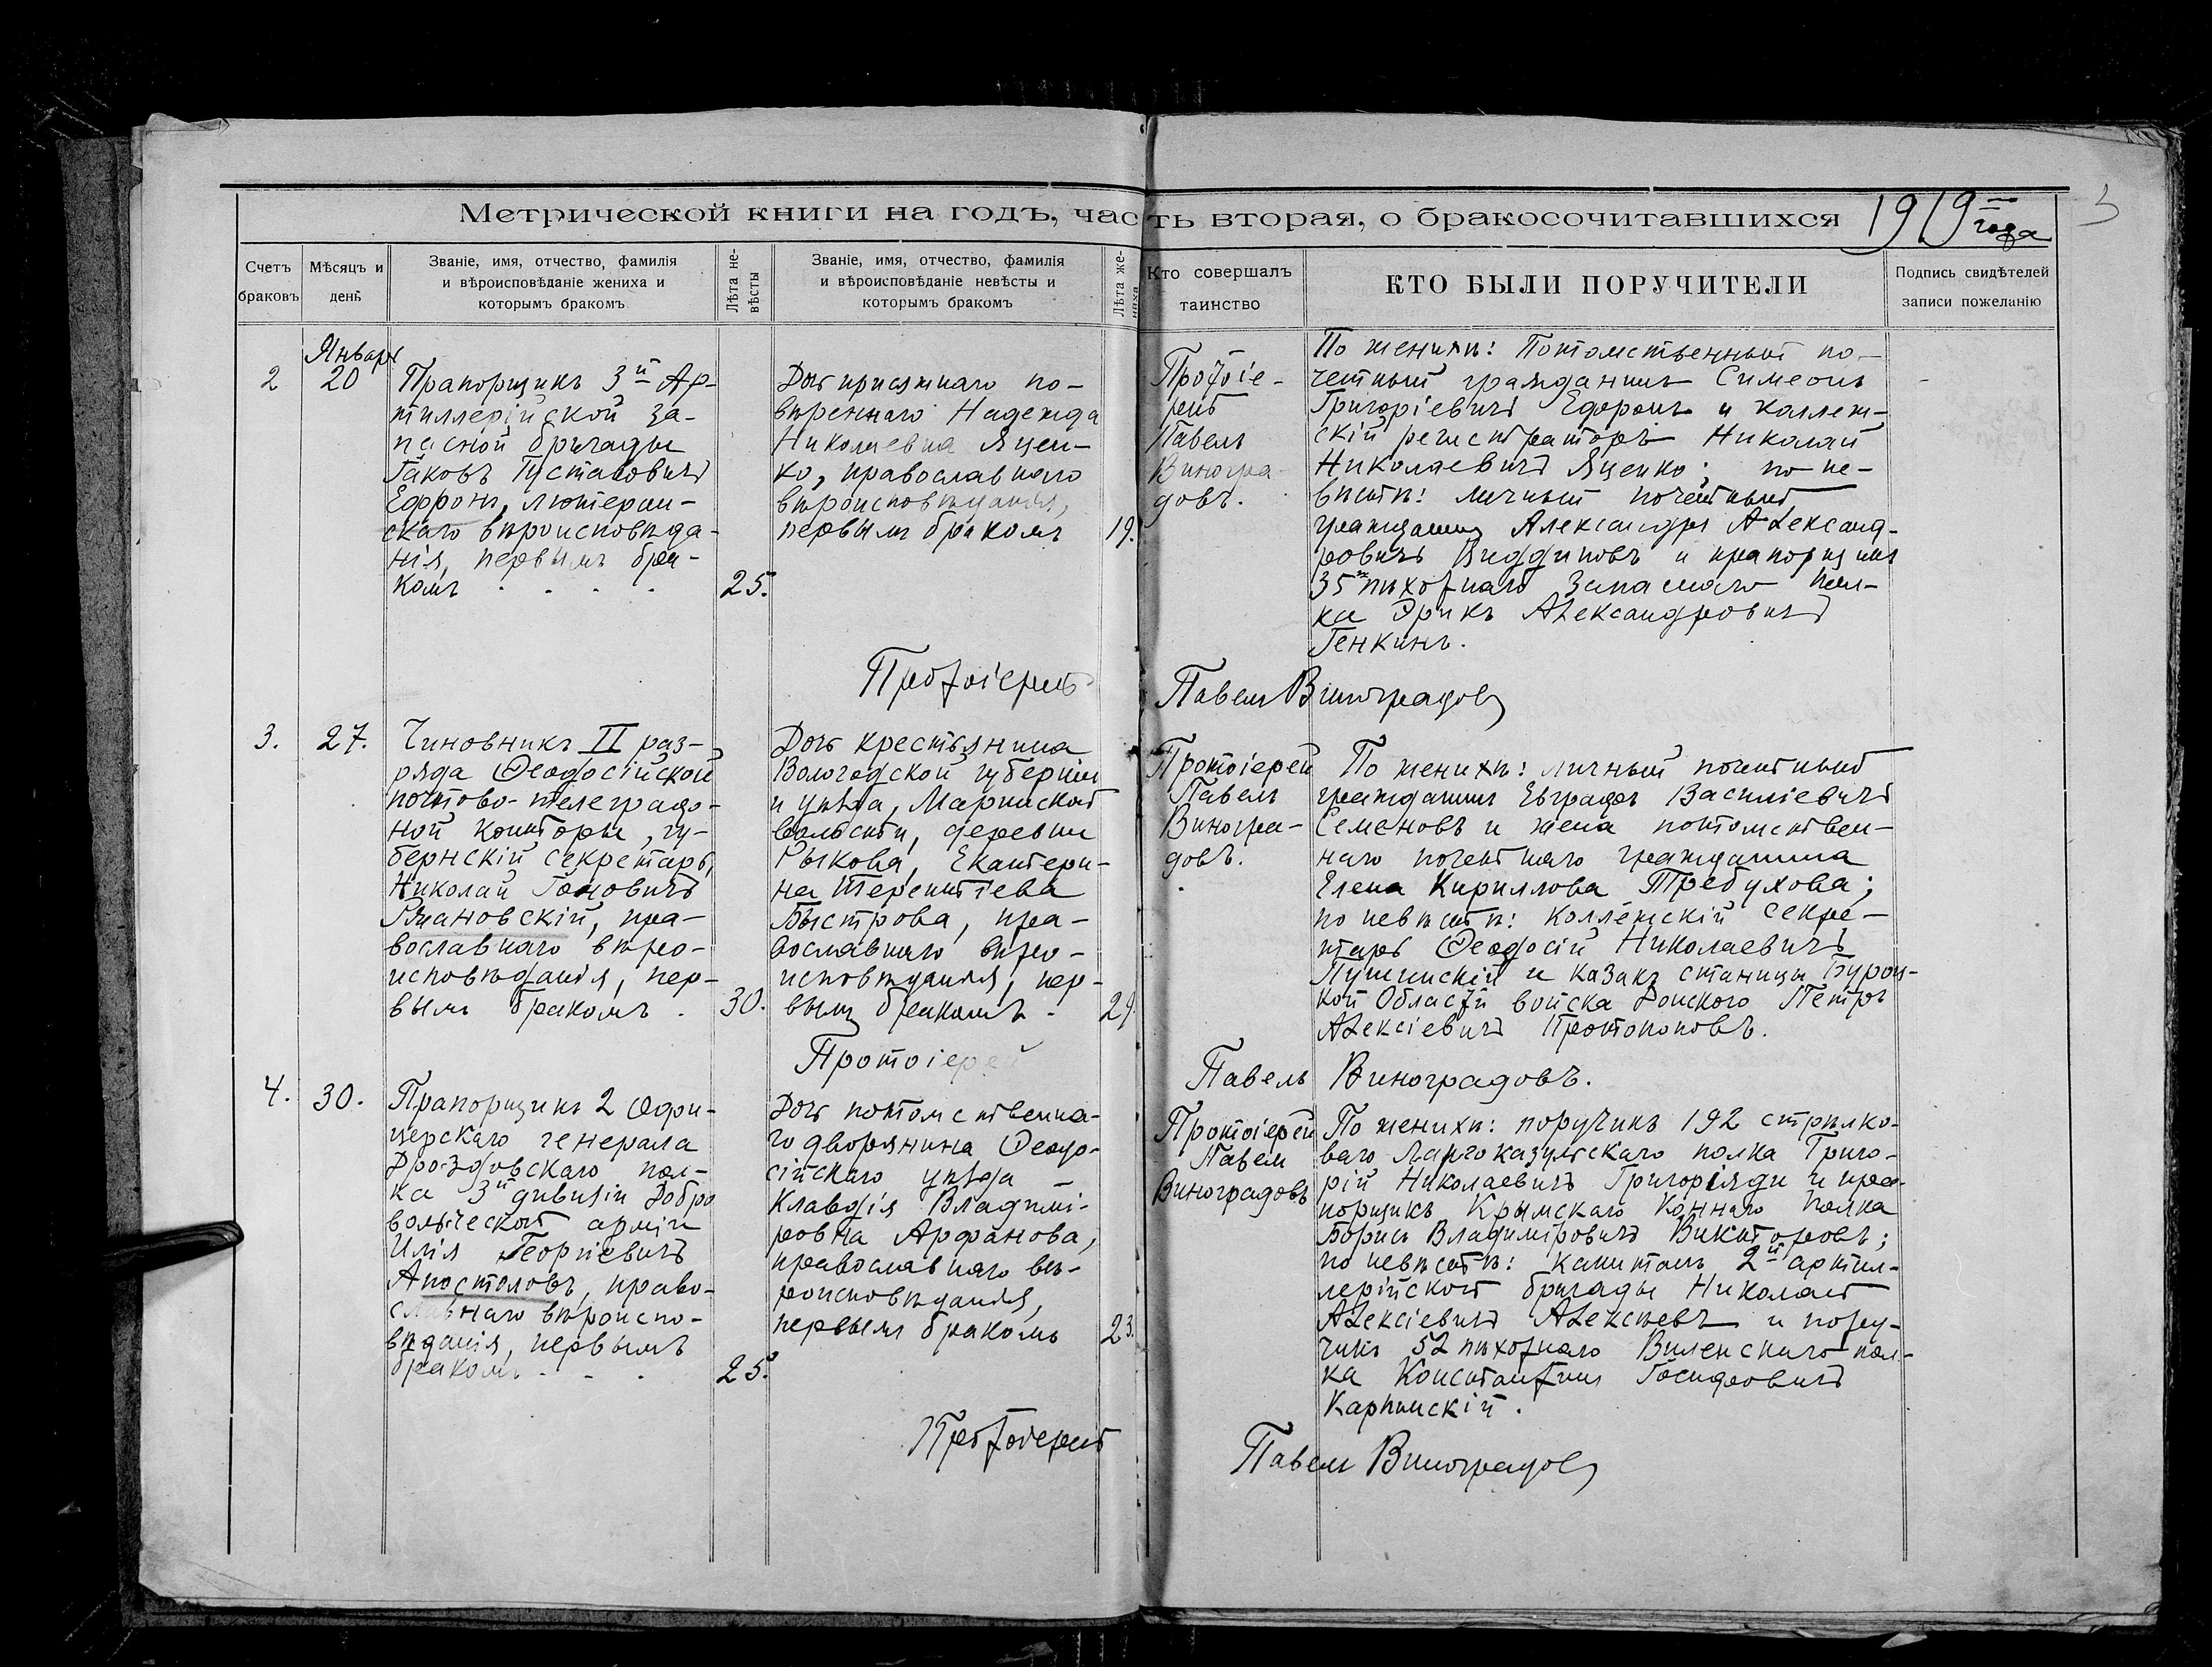 Метрической книги на годъ, часть вторая, о бракосочитавшихся 1919 года
3
Счетъ браковъ
Мѣсяцъ и день
Званіе, имя, отчество, фамилія и вѣроисповѣданіе жениха и которымъ бракомъ
Лѣта невѣсты
Званіе, имя, отчество, фамилія и вѣроисповѣданіе невѣсты и которымъ бракомъ
Лѣта жениха
Кто совершалъ таинство
КТО БЫЛИ ПОРУЧИТЕЛИ
Подпись свидѣтелей записи пожеланію
2
Январь
20
Прапорщикъ 3й Ар-
тиллерійской за-
пасной бригады
Іаковъ Густавовичъ
Ефронъ, лютеран-
скаго вѣроисповѣда-
нія, первымъ бра-
комъ
25.
Дочь присяжнаго по-
вѣреннаго Надежда
Николаевна Яцен-
ко, православнаго
вѣроисповѣданія,
первымъ бракомъ
19.
Протоіе-
рей
Павелъ
Виногра-
довъ.
По женихѣ: Потомственный по-
четный гражданинъ Симеонъ
Григоріевичъ Ефронъ и коллеж-
скій регистраторъ Николай
Николаевичъ Яценко; по не-
вѣстѣ: личный почетный
гражданинъ Александръ Александ-
ровичъ и прапорщикъ
35 пѣхотнаго Запаснаго пол-
ка Эрикъ Александровичъ
Генкинъ.
Протоіерей Павелъ Виноградовъ
3.
27.
Чиновникъ II раз-
ряда Ѳеодосійской
почтово-телеграф-
ной конторы, гу-
бернскій секретарь,
Николай
православнаго вѣро-
исповѣданія, пер-
вымъ бракомъ
30.
Дочь крестьянина
Вологодской губерніи
и уѣзда, Марнинской
волости, деревни
Рыкова, Екатери-
на Терентіева
Быстрова, пра-
вославнаго вѣро-
исповѣданія, пер-
вымъ бракомъ
29.
Протоіерей
Павелъ
Виногра-
довъ.
По женихѣ: личный почетный
гражданинъ Евграфъ Василіевичъ
Семеновъ и жена потомствен-
наго почетнаго гражданина
Елена Кириллова Требухова;
по невѣстѣ: коллежскій секре-
тарь Ѳеодосій Николаевичъ
Пушинскій и казакъ станицы Бурац-
кой Области войска Донского Петръ
Алексіевичъ Протопоповъ.
Протоіерей Павелъ Виноградовъ.
4.
30.
Прапорщикъ 2 Офи-
церскаго генерала
Дроздовскаго пол-
ка 3й дивизіи Добро
вольческой арміи
Илія Георгіевичъ
Апостоловъ, право-
славнаго вѣроиспо-
вѣданія, первымъ
бракомъ
25.
Дочь потомственна-
го дворянина Ѳеодо-
сійскаго уѣзда
Клавдія Владимі-
ровна Арфанова,
православнаго вѣ-
роисповѣданія,
первымъ бракомъ
23.
Протоіерей
Павелъ
Виноградовъ
По женихѣ: поручикъ 192 стрѣлко-
ваго Ларгокагульскаго полка Григо-
рій Николаевичъ Григоріади и пра-
порщикъ Крымскаго Коннаго полка
Борисъ Владиміровичъ Викторовъ;
по невѣстѣ: капитанъ 2й артил-
лерійской бригады Николай
Алексіевичъ Алексѣевъ и пору-
чикъ 52 пѣхотнаго Виленскаго пол-
ка Константинъ Іосифовичъ
Карпинскій.
Протоіерей Павелъ Виноградовъ